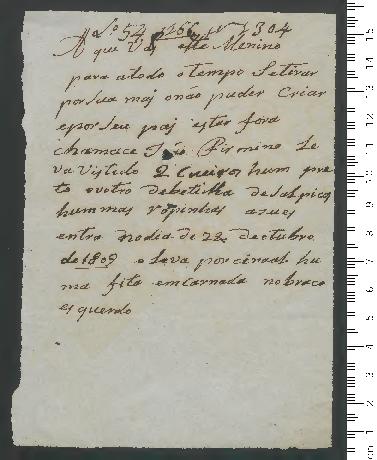 L.º 52 f 256 nº 1304
A qui Vai este Menino
para atodo otempo Setirar
porSua maj onão puder Criar
eporSeu paj estar fora
chamace João Pirmino Le
va Vistido 2 Cueiros hum pre
to ooutro debetilha de Salpicos
hummas ropinhas asues
entro nodia de 22 de outubro
de 1809 e Leva por cinal hu
ma fita emcarnada nobraco
esquerdo
15
4
3
2
1
cm